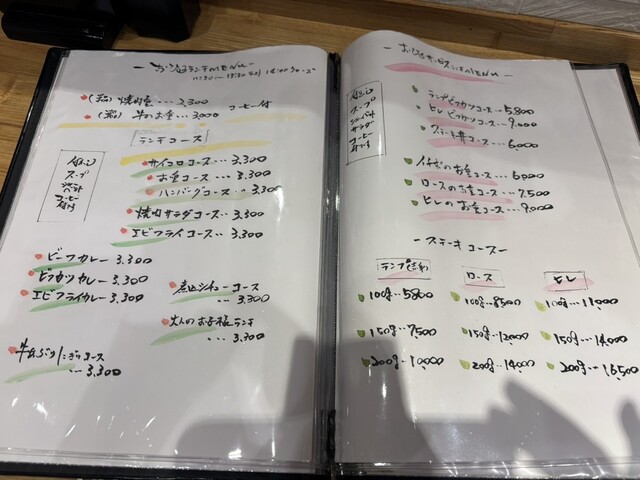 おひるランチMENU
(器) 焼肉重 … 3,300
(器) 牛めし重 … 3,000
コーヒー付
ランチコース
サイコロコース … 3,300
お重コース … 3,300
ハンバーグコース … 3,300
焼肉サラダコース … 3,300
エビフライコース … 3,300
スープ
コーヒー
付き
ビーフカレー … 3,300
ビフカツカレー … 3,300
エビフライカレー 3,300
煮込シチューコース
… 3,300
大人のお子様ランチ
… 3,300
牛にぎりコース
… 3,300
MENU
スープ
サラダ
コーヒー
付き
ランプビフカツコース … 5,800
ヒレビフカツコース … 9,000
ステーキ丼コース … 6,000
イチボのお重コース … 6,000
ロースのお重コース … 7,500
ヒレのお重コース … 9,000
ーステーキコースー
ランプ
100g … 5800
150g … 7,500
200g … 10,000
ロース
100g … 8500
150g … 12000
200g … 14,000
ヒレ
100g … 11,000
150g … 14,000
200g … 16,500